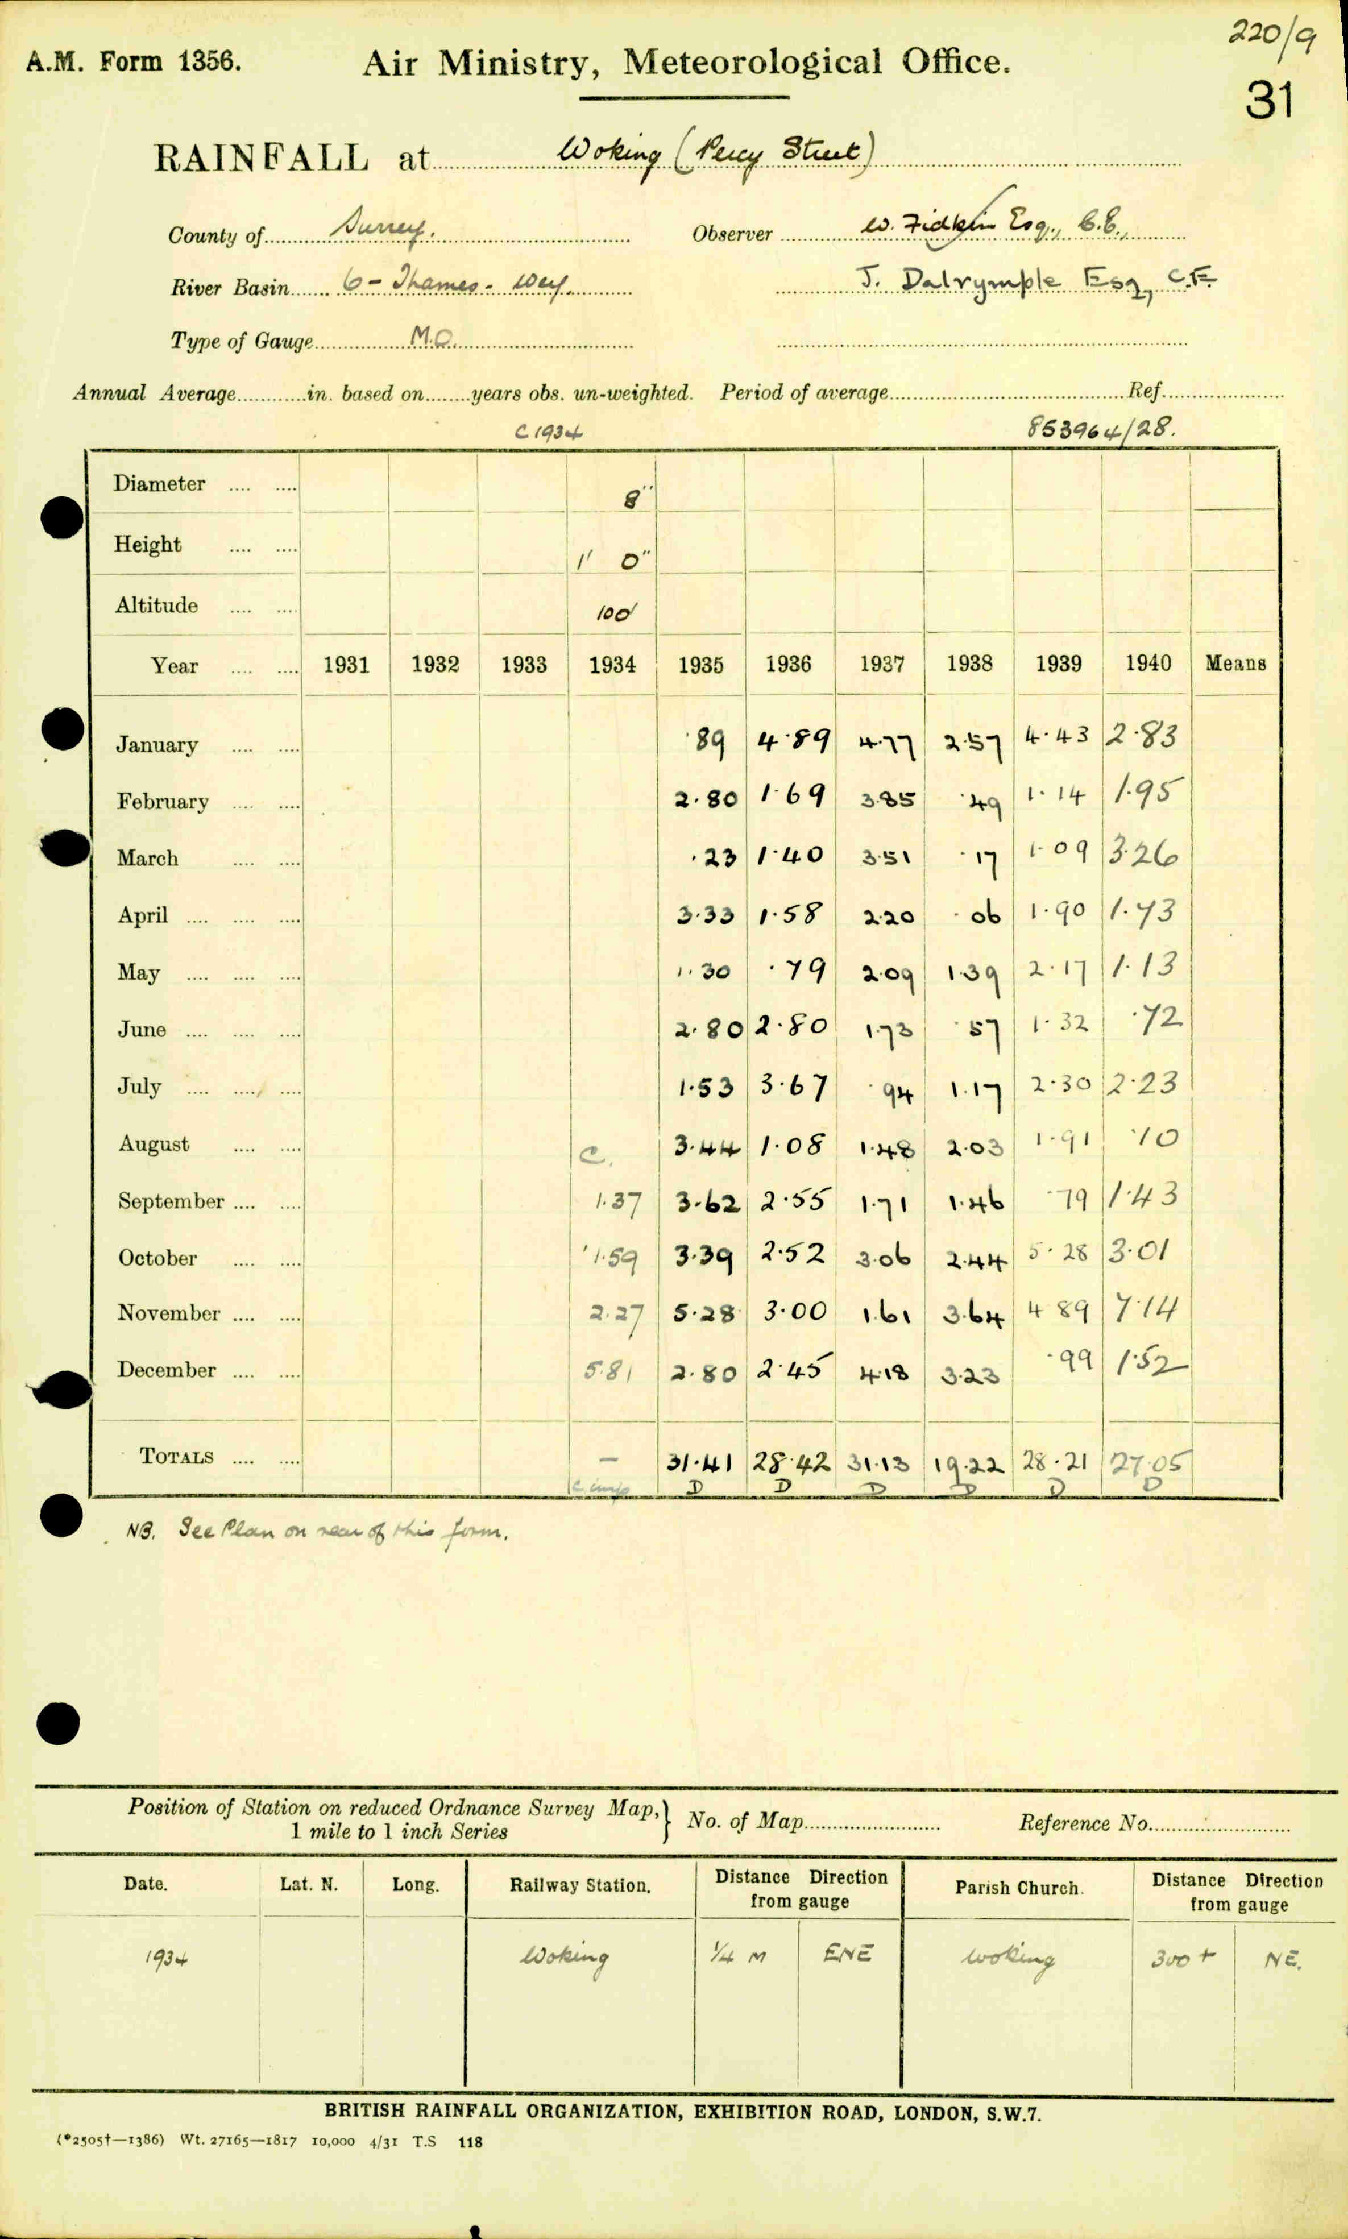 220/9
A.M. Form 1356. Air Ministry, Meteorological Office.
31
RAINFALL at Woking (Percy Street)
County of Surrey. Observer W. Fidkin Esq., C.E.,
River Basin 6 - Thames - Wey. J. Dalrymple Esq, C.E.
Type of Gauge M.O.
Annual Average in. based on years obs. un-weighted. Period of average Ref.
C 1934 853964/28.
Diameter 8"
Height 1' 0"
Altitude 100'
Year 1931 1932 1933 1934 1935 1936 1937 1938 1939 1940 Means
January ·89 4·89 4·77 2·57 4·43 2·83
February 2·80 1·69 3·85 ·49 1·14 1·95
March ·23 1·40 3·51 ·17 1·09 3·26
April 3·33 1·58 2·20 ·06 1·90 1·73
May 1·30 ·79 2·09 1·39 2·17 1·13
June 2·80 2·80 1·73 ·57 1·32 ·72
July 1·53 3·67 ·94 1·17 2·30 2·23
August C. 3·44 1·08 1·48 2·03 1·91 ·10
September 1·37 3·62 2·55 1·71 1·46 ·79 1·43
October 1·59 3·39 2·52 3·06 2·44 5·28 3·01
November 2·27 5·28 3·00 1·61 3·64 4·89 7·14
December 5·81 2·80 2·45 4·18 3·23 ·99 1·52
TOTALS — 31·41 28·42 31·13 19·22 28·21 27·05
D D D D D D
NB. See Plan on rear of this form.
Position of Station on reduced Ordnance Survey Map, 1 mile to 1 inch Series } No. of Map Reference No.
Date. Lat. N. Long. Railway Station. Distance Direction from gauge Parish Church. Distance Direction from gauge
1934 Woking ¼ M ENE Woking 300 + NE.
BRITISH RAINFALL ORGANIZATION, EXHIBITION ROAD, LONDON, S.W.7.
(*2505†—1386) Wt. 27165—1817 10,000 4/31 T.S 118